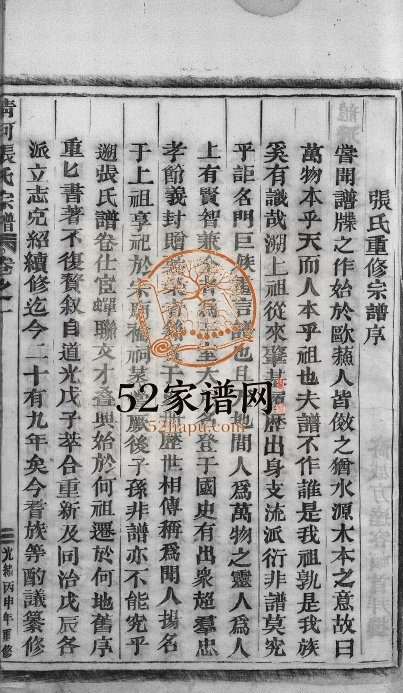 張氏重修宗譜序
嘗聞譜牒之作始於歐蘇人皆倣之猶水源木本之意故曰
萬物本乎天而人本乎祖也夫譜不作誰是我祖孰是我族
奚有識哉溯上祖從來肇基歷出身支流派衍非譜莫究
乎詎名門巨族重言譜也且天地間人爲萬物之靈人爲人
上有賢智兼全者爲王室大名登于國史有出衆超羣忠
孝節義封贈歷世相傳稱爲聞人揚名
于上祖享祀於宗廟厥後子孫非譜亦不能究乎
遡張氏譜卷仕宦蟬聯文才叠興始於何祖遷於何地舊序
重匕書著不復贅叙自道光戊子萃合重新及同治戊辰各
派立志定紹續修迄今二十有九年矣今耆族等酌議纂修
清河張氏宗譜 卷之一
三 光緒丙申年重修
52家谱网
52hapu.com